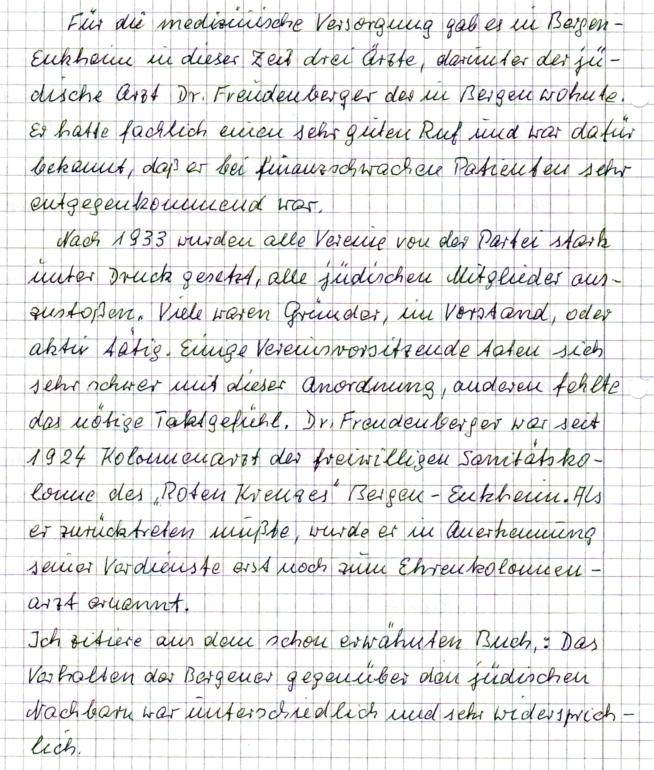 Für die medizinische Versorgung gab es in Bergen-
Enkheim in dieser Zeit drei Ärzte, darunter der jü-
dische Arzt Dr. Freudenberger der in Bergen wohnte.
Er hatte fachlich einen sehr guten Ruf und war dafür
bekannt, daß er bei finanzschwachen Patienten sehr
entgegenkommend war.
Nach 1933 wurden alle Vereine von der Partei stark
unter Druck gesetzt, alle jüdischen Mitglieder aus-
zustoßen. Viele waren Gründer, im Vorstand, oder
aktiv tätig. Einige Vereinsvorsitzende taten sich
sehr schwer mit dieser Anordnung, anderen fehlte
das nötige Taktgefühl. Dr. Freudenberger war seit
1924 Kolonnenarzt der freiwilligen Sanitätsko-
lonne des „Roten Kreuzes" Bergen-Enkheim. Als
er zurücktreten mußte, wurde er in Anerkennung
seiner Verdienste erst noch zum Ehrenkolonnen-
arzt ernannt.
Ich zitiere aus dem schon erwähnten Buch,: Das
Verhalten der Bergener gegenüber den jüdischen
Nachbarn war unterschiedlich und sehr widersprich-
lich.